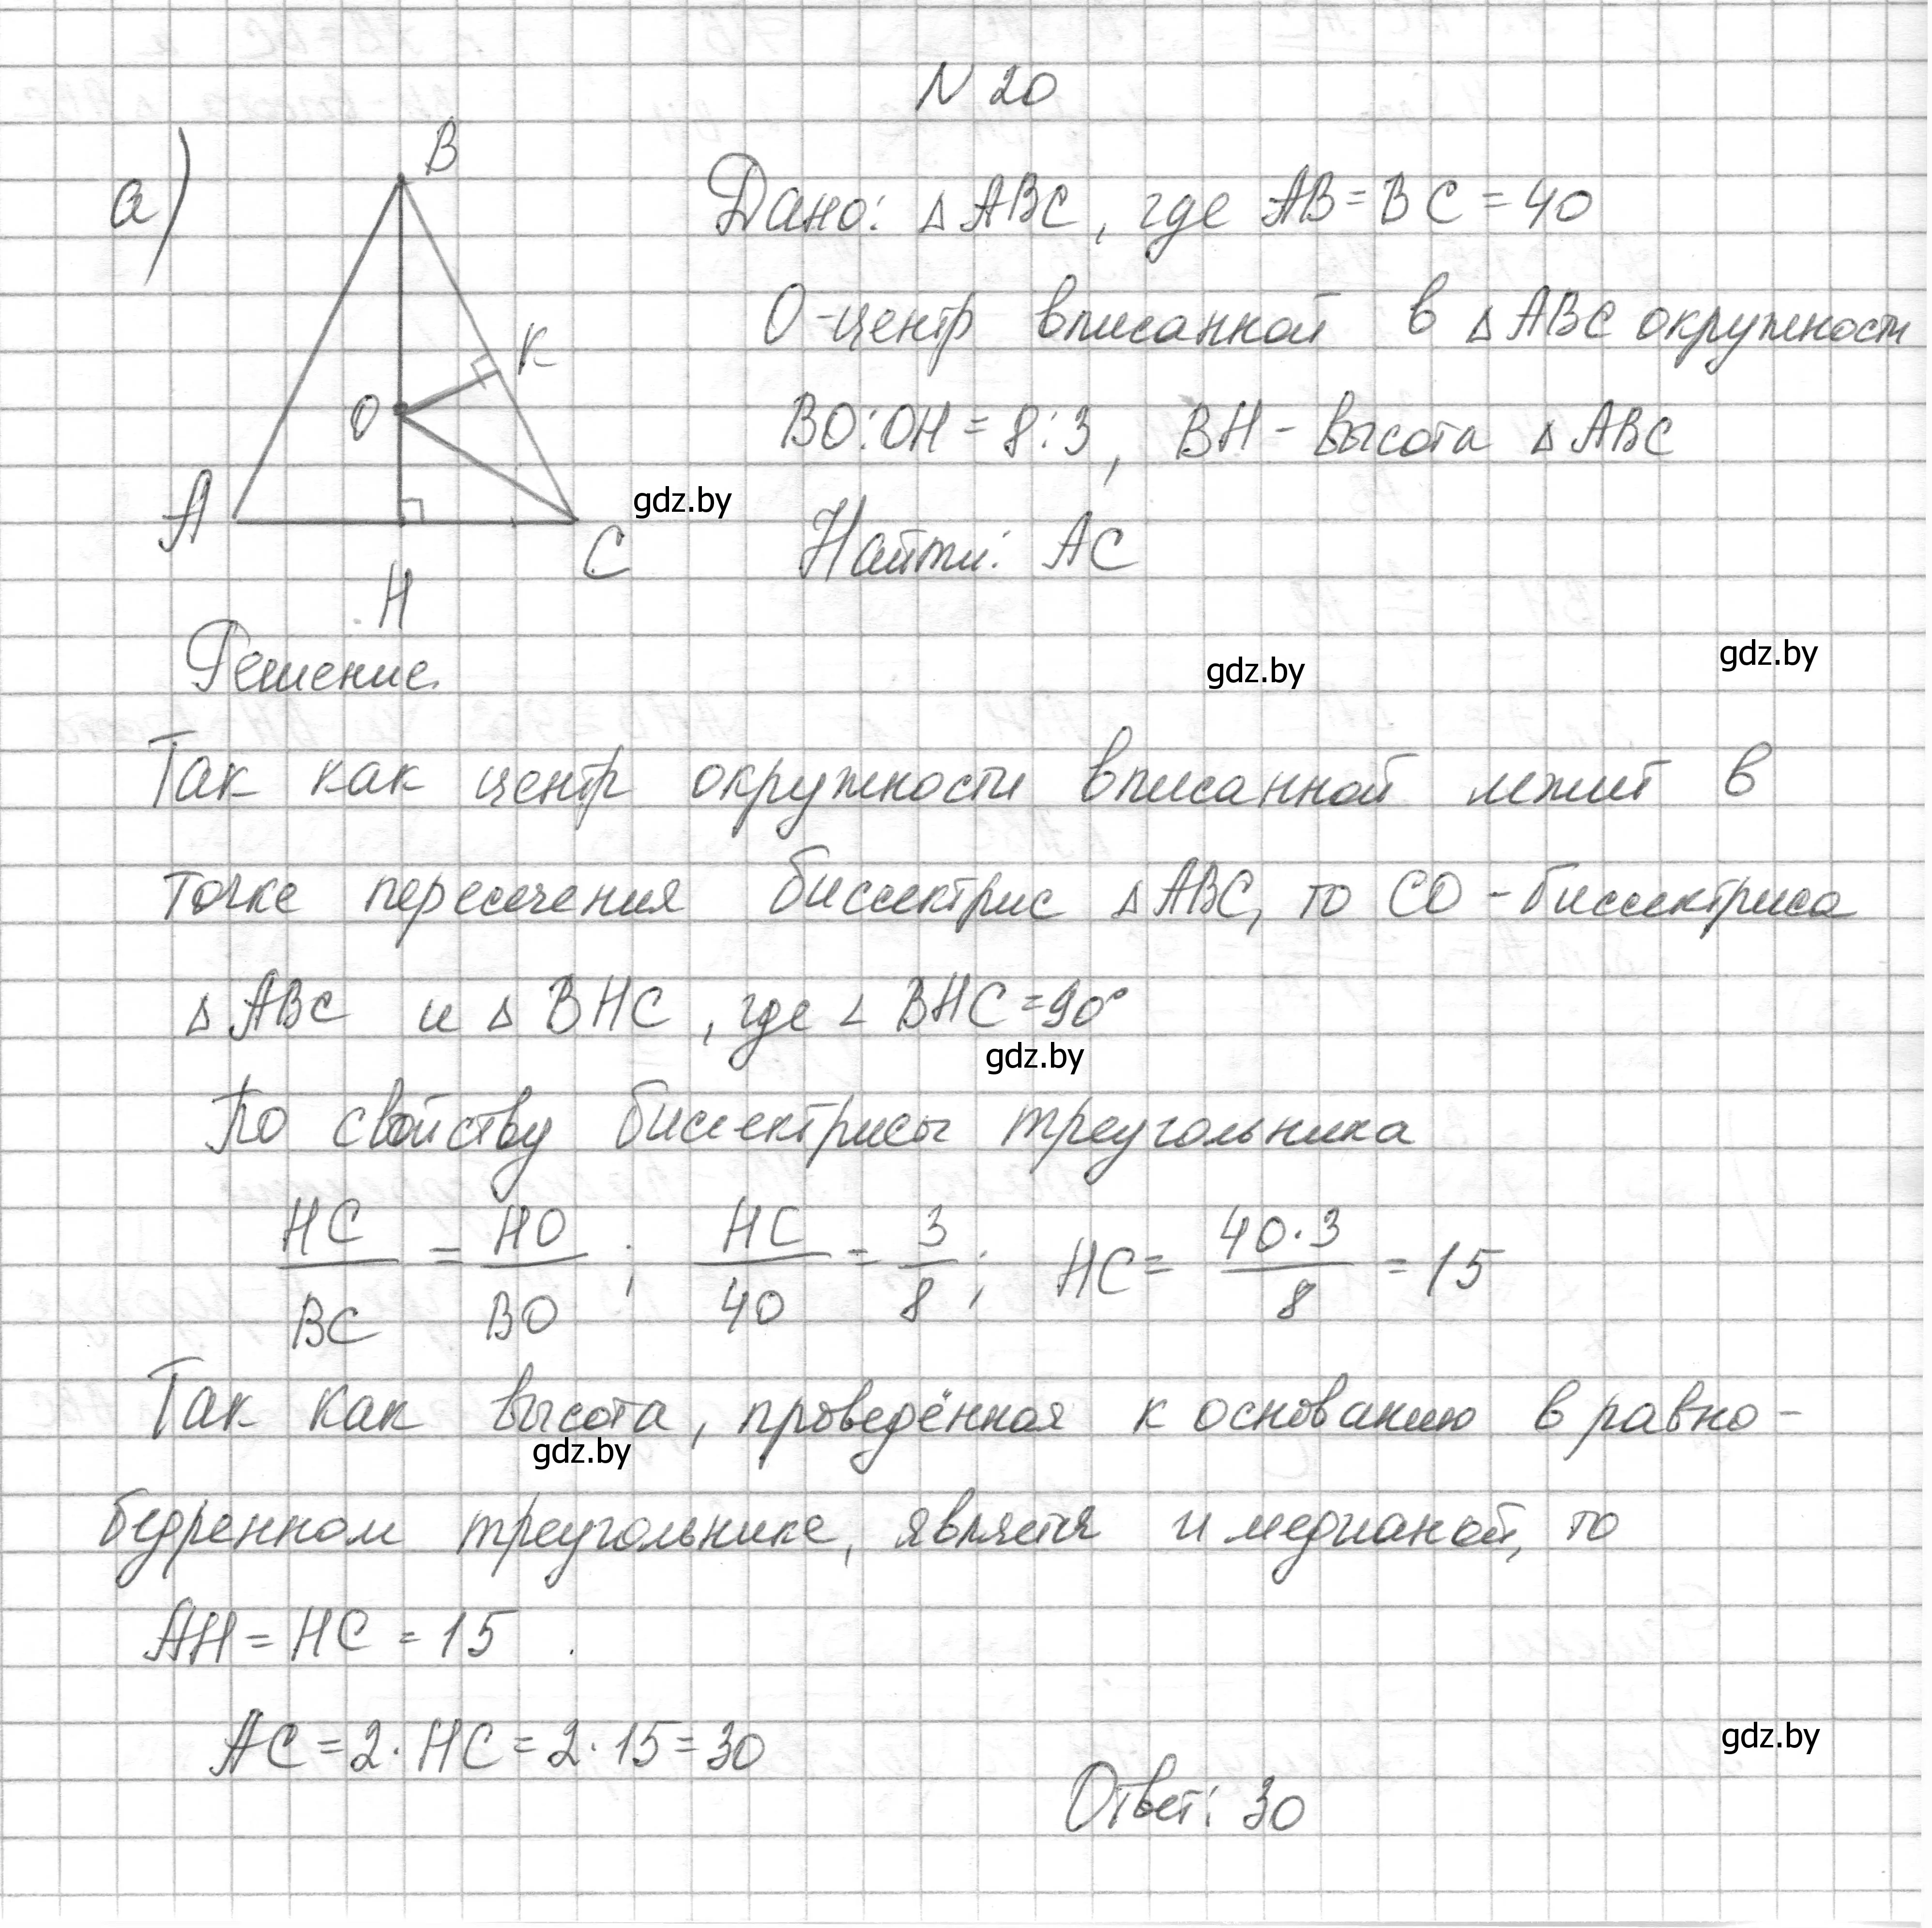 N 20
а)
B
K
O
A
C
H
Дано: △ABC, где AB=BC=40
O-центр вписанной в △ABC окружности
BO:OH=8:3, BH- высота △ABC
gdz.by
Найти: AC
Решение.
gdz.by
gdz.by
Так как центр окружности вписанной лежит в
точке пересечения биссектрис △ABC, то CO -биссектриса
△ABC и △ BHC, где ∠ BHC=90°
gdz.by
По свойству биссектрисы треугольника
HC/BC = HO/BO ; HC/40 = 3/8 ; HC= 40·3/8 = 15
Так как высота, проведённая к основанию в равно-
gdz.by
бедренном треугольнике, является и медианой, то
AH=HC=15
AC=2·HC=2·15=30
gdz.by
Ответ: 30